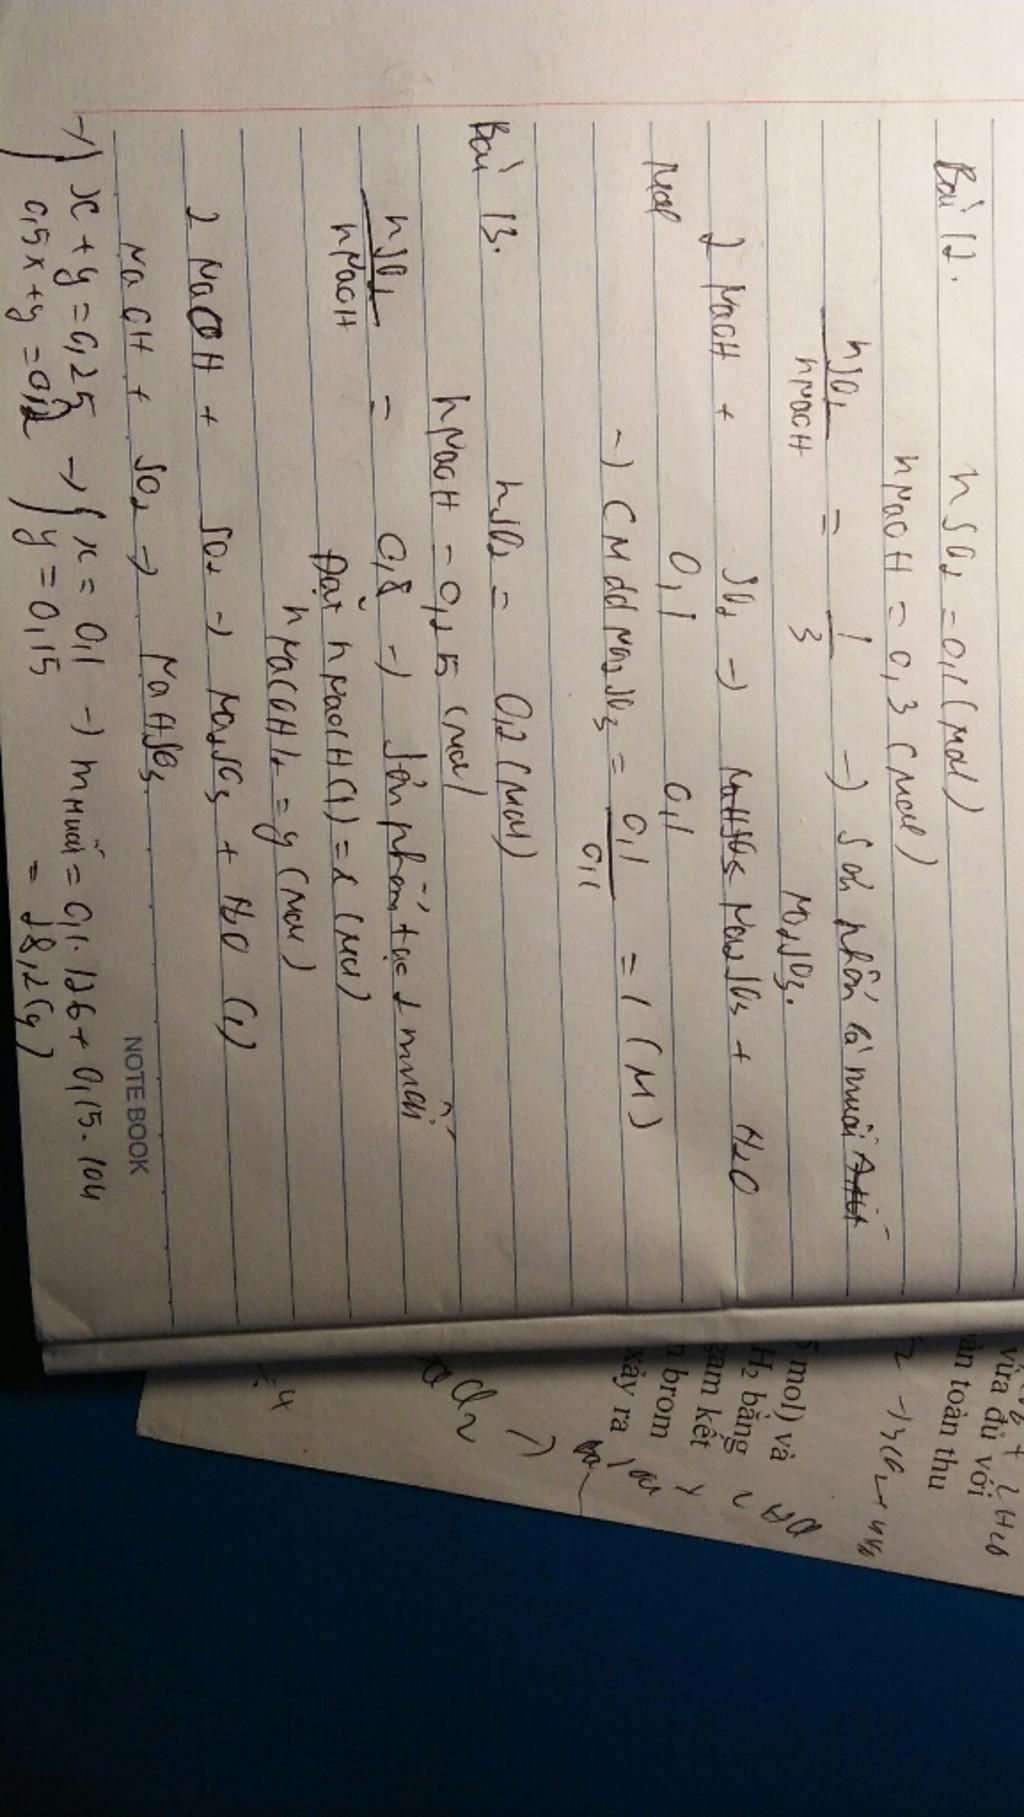 Bài 12. nSO2 = 0,1 (mol)
nNaOH = 0,3 (mol)
nSO2 / nNaOH = 1/3 → Sản phẩm là muối
Na2SO3.
2 NaOH + SO2 → Na2SO3 + H2O
mol 0,1 0,1
→ CM dd Na2SO3 = 0,1 / 0,1 = 1 (M)
Bài 13. nSO2 = 0,2 (mol)
nNaOH = 0,25 (mol)
nSO2 / nNaOH = 0,8 → Sản phẩm tạo 2 muối
Đặt nNaOH(1) = x (mol)
nNaOH2 = y (mol)
2 NaOH + SO2 → Na2SO3 + H2O (1)
NaOH + SO2 → NaHSO3
→ { x + y = 0,25 → { x = 0,1 → m muối = 0,1.126 + 0,15.104
0,5x + y = 0,2 y = 0,15 = 28,2 (g)
NOTE BOOK
vừa đủ với
àn toàn thu
mol) và
H2 bằng
gam kết
brom
xảy ra